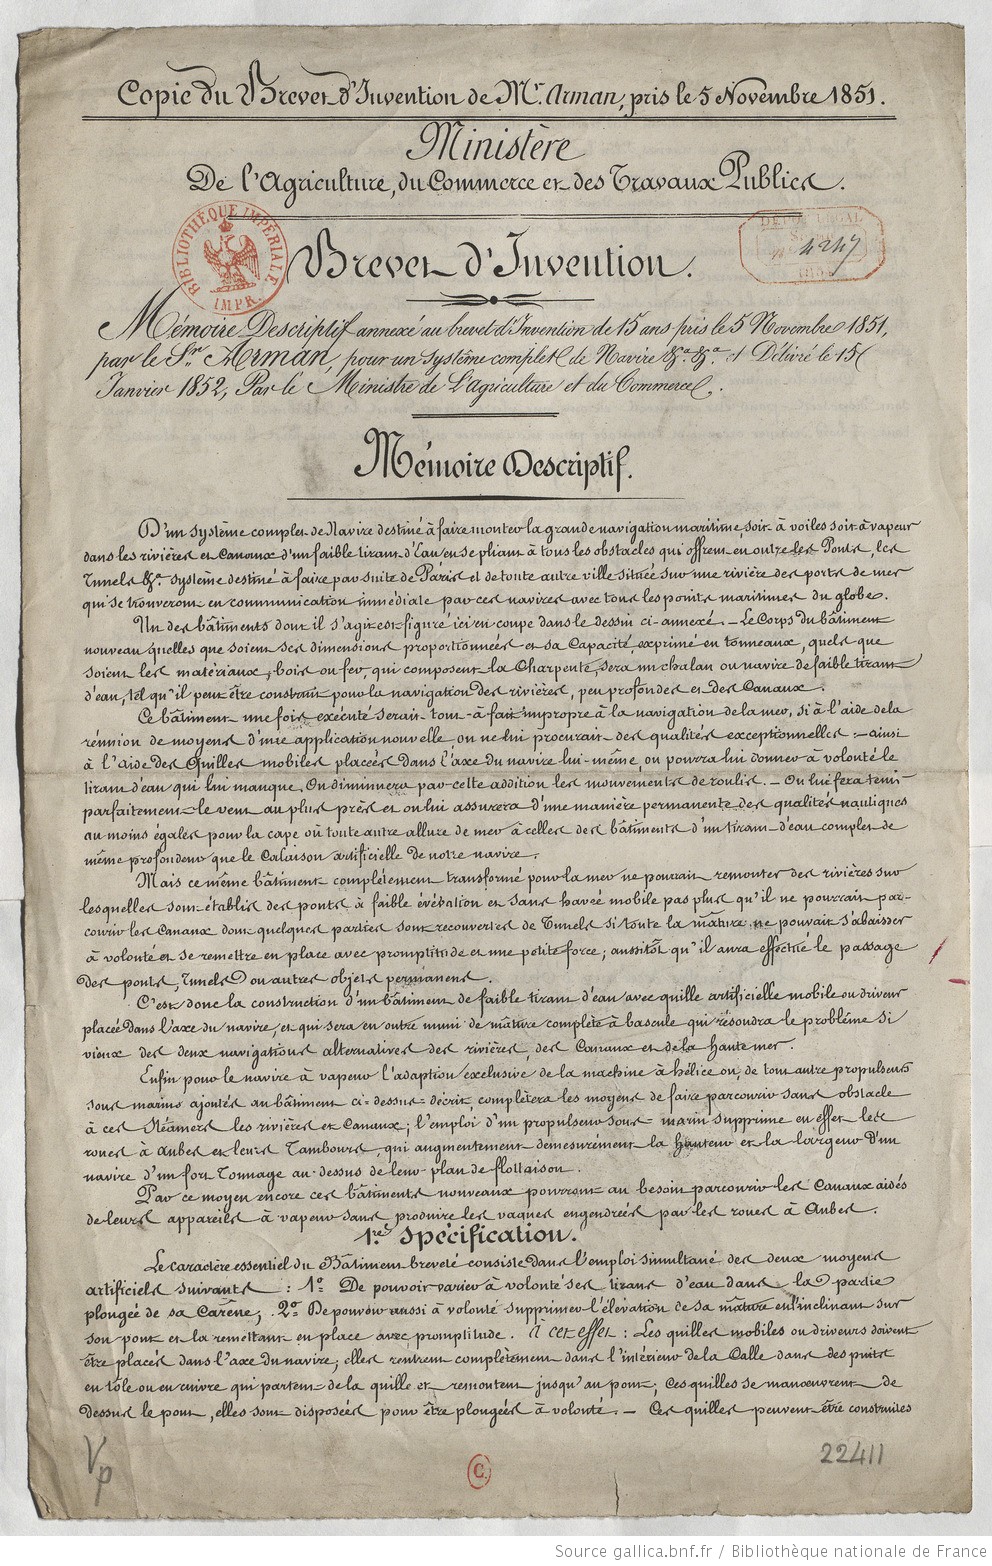 Copie du Brevet d'Invention de Mr. Arman, pris le 5 Novembre 1851.
Ministère
De l'Agriculture, du Commerce et des Travaux Publics.
BIBLIOTHÈQUE IMPÉRIALE
IMPR.
DÉPOT LEGAL
4247
Brevet d'Invention.
Mémoire Descriptif annexé au brevet d'Invention de 15 ans pris le 5 Novembre 1851,
par le Sr. Arman, pour un système complet de Navire &a. &a. et Délivré le 15
Janvier 1852, Par le Ministre de L'agriculture et du Commerce.
Mémoire Descriptif.
D'un système complet de Navire destiné à faire monter la grande navigation maritime, soit à voiles soit à vapeur
dans les rivières et Canaux d'un faible tirant d'Eau en se pliant à tous les obstacles qui offrent en outre les Ponts, les
Tunels &a. système destiné à faire par suite de Paris et de toute autre ville située sur une rivière des ports de mer
qui se trouveront en communication immédiate par ces navires avec tous les points maritimes du globe.
Un des bâtiments dont il s'agit est figuré ici en coupe dans le dessin ci-annexé. – Le Corps du bâtiment
nouveau quelles que soient ses dimensions proportionnées et sa Capacité exprimé en tonneaux, quels que
soient les matériaux, bois ou fer, qui composent la Charpente, sera un chalan ou navire de faible tirant
d'eau, tel qu'il peut être construit pour la navigation des rivières, peu profondes et des Canaux.
Ce bâtiment une fois exécuté serait tout-à fait impropre à la navigation de la mer, si à l'aide de la
réunion de moyens d'une application nouvelle on ne lui procurait des qualités exceptionnelles :– ainsi
à l'aide des Quilles mobiles placées dans l'axe du navire lui-même, on pourra lui donner à volonté le
tirant d'eau qui lui manque. On diminuera par cette addition les mouvements de roulis. – On lui fera tenir
parfaitement le vent au plus près et on lui assurera d'une manière permanente des qualités nautiques
au moins égales pour la cape où toute autre allure de mer à celles des bâtiments d'un tirant d'eau complet de
même profondeur que le Calaison artificielle de notre navire.
Mais ce même bâtiment complètement transformé pour la mer ne pourrait remonter des rivières sur
lesquelles sont établis des ponts à faible évévation et sans havée mobile pas plus qu'il ne pourrait par-
courir les Canaux dont quelques parties sont recouvertes de Tunels si toute la mâture ne pouvait s'abaisser
à volonté et se remettre en place avec promptitude et une petite force; aussitôt qu'il aura effectué le passage
des ponts, Tunels ou autres objets permanents.
C'est donc la construction d'un bâtiment de faible tirant d'eau avec quille artificielle mobile ou driveur
placée dans l'axe du navire, et qui sera en outre muni de mâture complète à bascule qui résoudra le problème si
vieux des deux navigations alternatives des rivières, des Canaux et de la haute mer.
Enfin pour le navire à vapeur l'adaption exclusive de la machine à hélice ou, de tout autre propulseurs
sous marins ajoutés au bâtiment ci=dessus=décrit, complètera les moyens de faire parcourir sans obstacle
à ces Stéamers les rivières et Canaux; l'emploi d'un propulseur sous-marin supprime en effet les
roues à aubes et leurs Tambours, qui augmentent démesurément la hauteur et la largeur d'un
navire d'un fort Tonnage au-dessus de leur plan de flottaison.
Par ce moyen encore ces bâtiments nouveaux pourront au besoin parcourir les Canaux aidés
de leurs appareils à vapeur sans produire les vagues engendrées par les roues à Aubes.
1re. Spécification.
Le caractère essentiel du Bâtiment breveté consiste dans l'emploi simultané des deux moyens
artificiels suivants : 1o. De pouvoir varier à volonté ses tirans d'eau dans la partie
plongée de sa Carène; 2o. De pouvoir aussi à volonté supprimer l'élévation de sa mâture en l'inclinant sur
son pont et la remettant en place avec promptitude. À cet effet : Les quilles mobiles ou driveurs doivent
être placés dans l'axe du navire; elles rentrent complètement dans l'intérieur de la Calle dans des puits
en tôle ou en cuivre qui partent de la quille et remontent jusqu'au pont; ces quilles se manœuvrent de
dessus le pont, elles sont disposées pour être plongées à volonté. – Ces quilles peuvent être construites
Vp
C
22411
Source gallica.bnf.fr / Bibliothèque nationale de France